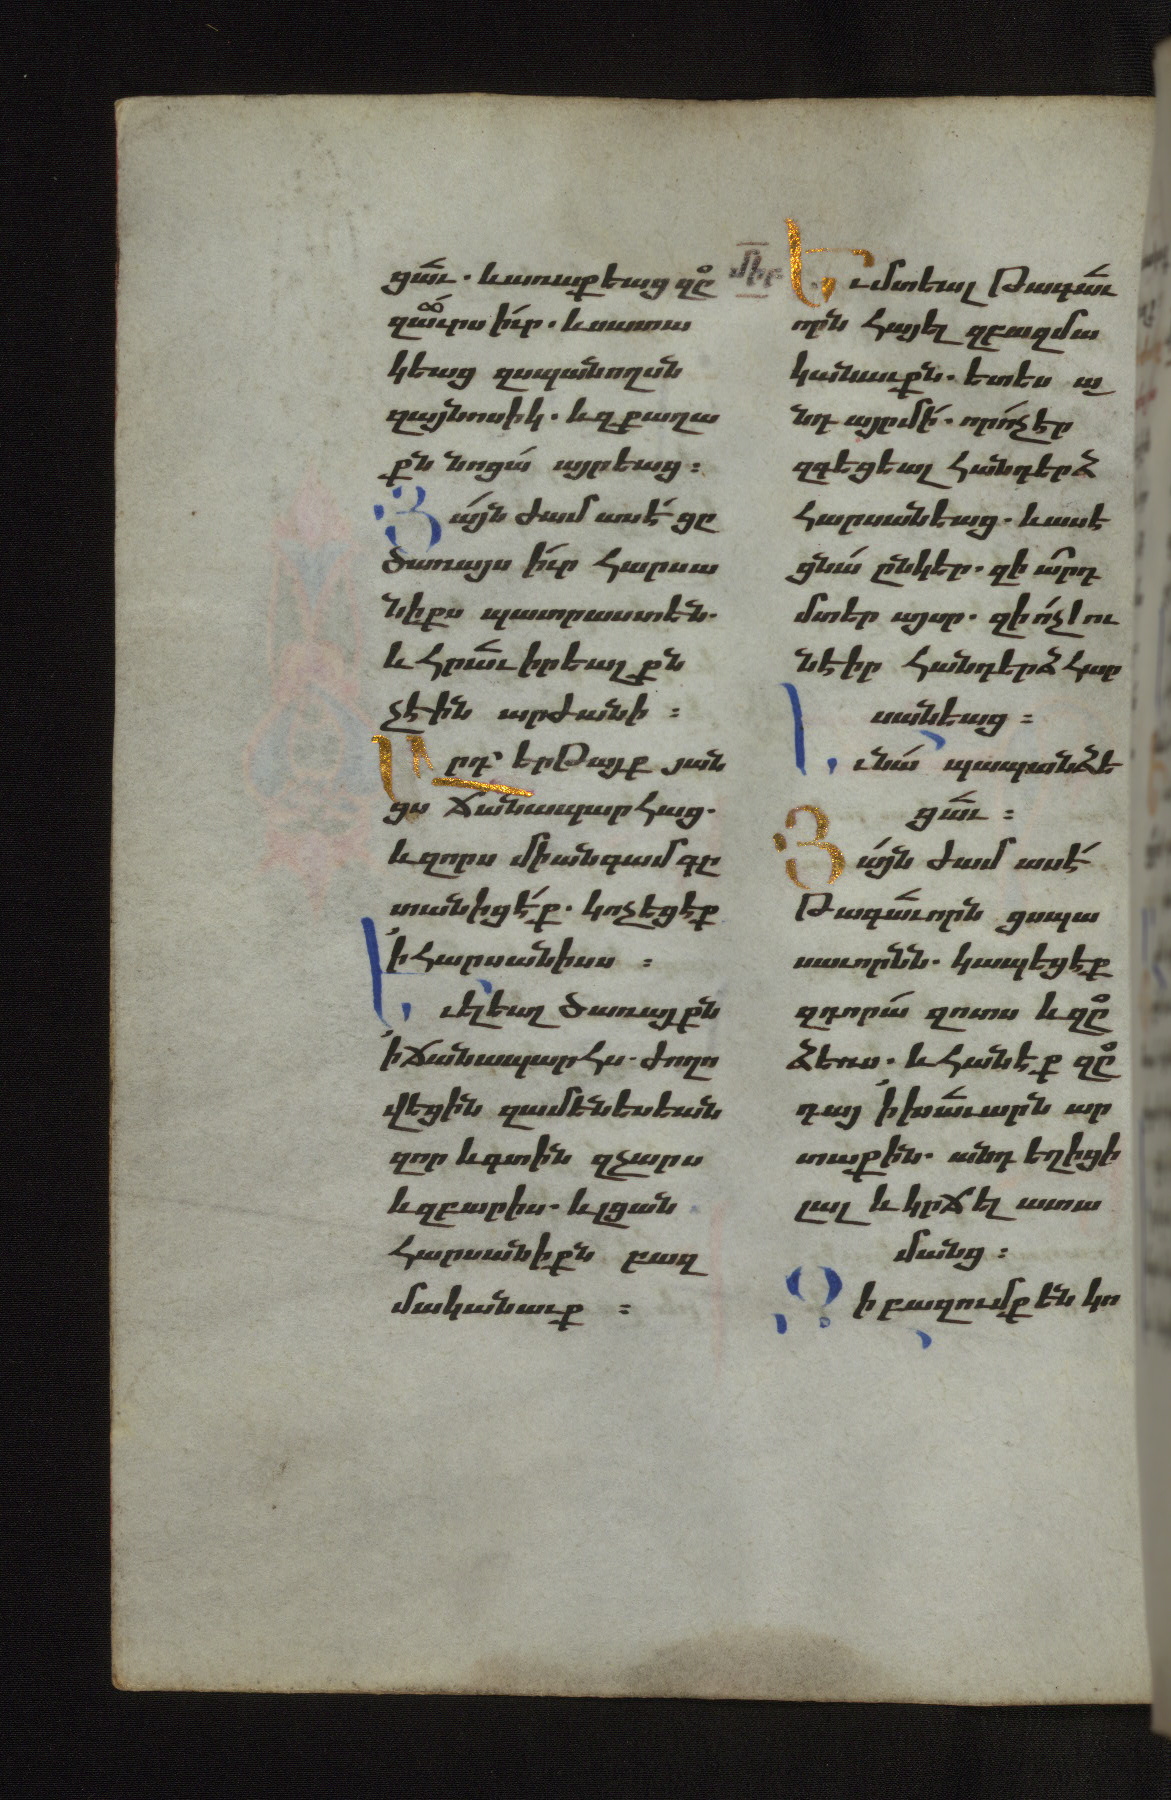 ցաւ. և առաքեաց զը
զաւրս իւր. և սատա
կեաց զսպանողսն
զայնոսիկ. և զքաղա
քն նոցա այրեաց։
Յայնժամ ասէ ցը
ծառայս իւր հարսա
նիքս պատրաստեն.
և հրաւիրեալքն
չէին արժանի։
Արդ երթայք յան
ցս ճանապարհաց.
և զորս միանգամ գը
տանիցէք. կոչեցէք
ի հարսանիսս։
Եւ ելեալ ծառայքն
ի ճանապարհս. ժողո
վեցին զամենեսեան
զոր և գտին զչարս
և զբարիս. և լցան
հարսանիքն բազ
մականաւք։
Եւ մտեալ թագաւ
որն հայել զբազմա
կանաւքն. ետես ա
նդ այր մի. որ ոչ էր
զգեցեալ հանդերձ
հարսանեաց. և ասէ
ցնա ընկեր. զիարդ
մտեր այսր. զի ոչ ու
նէիր հանդերձ հար
սանեաց։
Եւ նա պապանձե
ցաւ։
Յայնժամ ասէ
թագաւորն ցսպա
սաւորսն. կապեցէք
զդորա զոտս և զը
ձեռս. և հանէք զը
դայ ի խաւարն ար
տաքին. անդ եղիցի
լալ և կրճել ատա
մանց։
Զի բազումք են կո